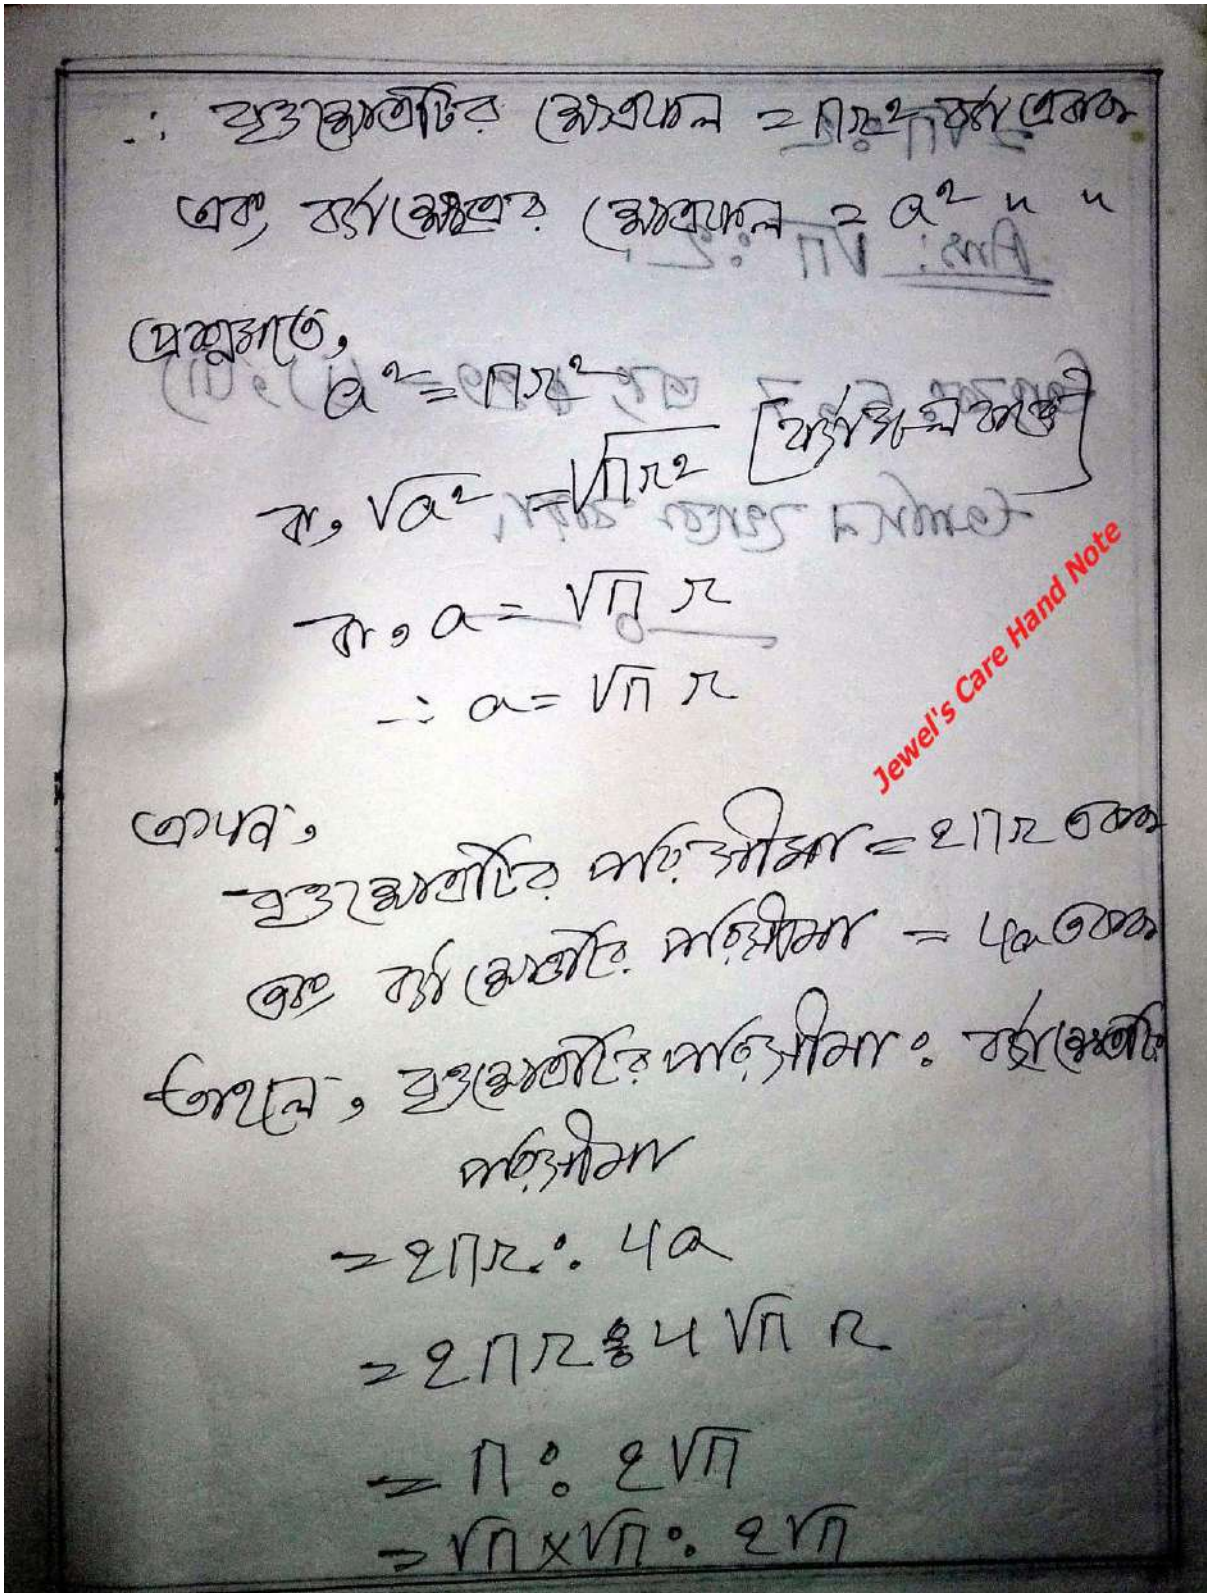 ∴ বৃত্তক্ষেত্রটির ক্ষেত্রফল = πr² বর্গ একক
এবং বর্গক্ষেত্রের ক্ষেত্রফল = a² " "
প্রশ্নমতে,
a² = πr²
বা, √a² = √πr² [বর্গমূল করে]
বা, a = √π r
∴ a = √π r
Jewel's Care Hand Note
এখন,
বৃত্তক্ষেত্রটির পরিসীমা = 2πr একক
এবং বর্গক্ষেত্রটির পরিসীমা = 4a একক
তাহলে, বৃত্তক্ষেত্রটির পরিসীমা : বর্গক্ষেত্রটির
পরিসীমা
= 2πr : 4a
= 2πr : 4√π r
= π : 2√π
= √π × √π : 2√π